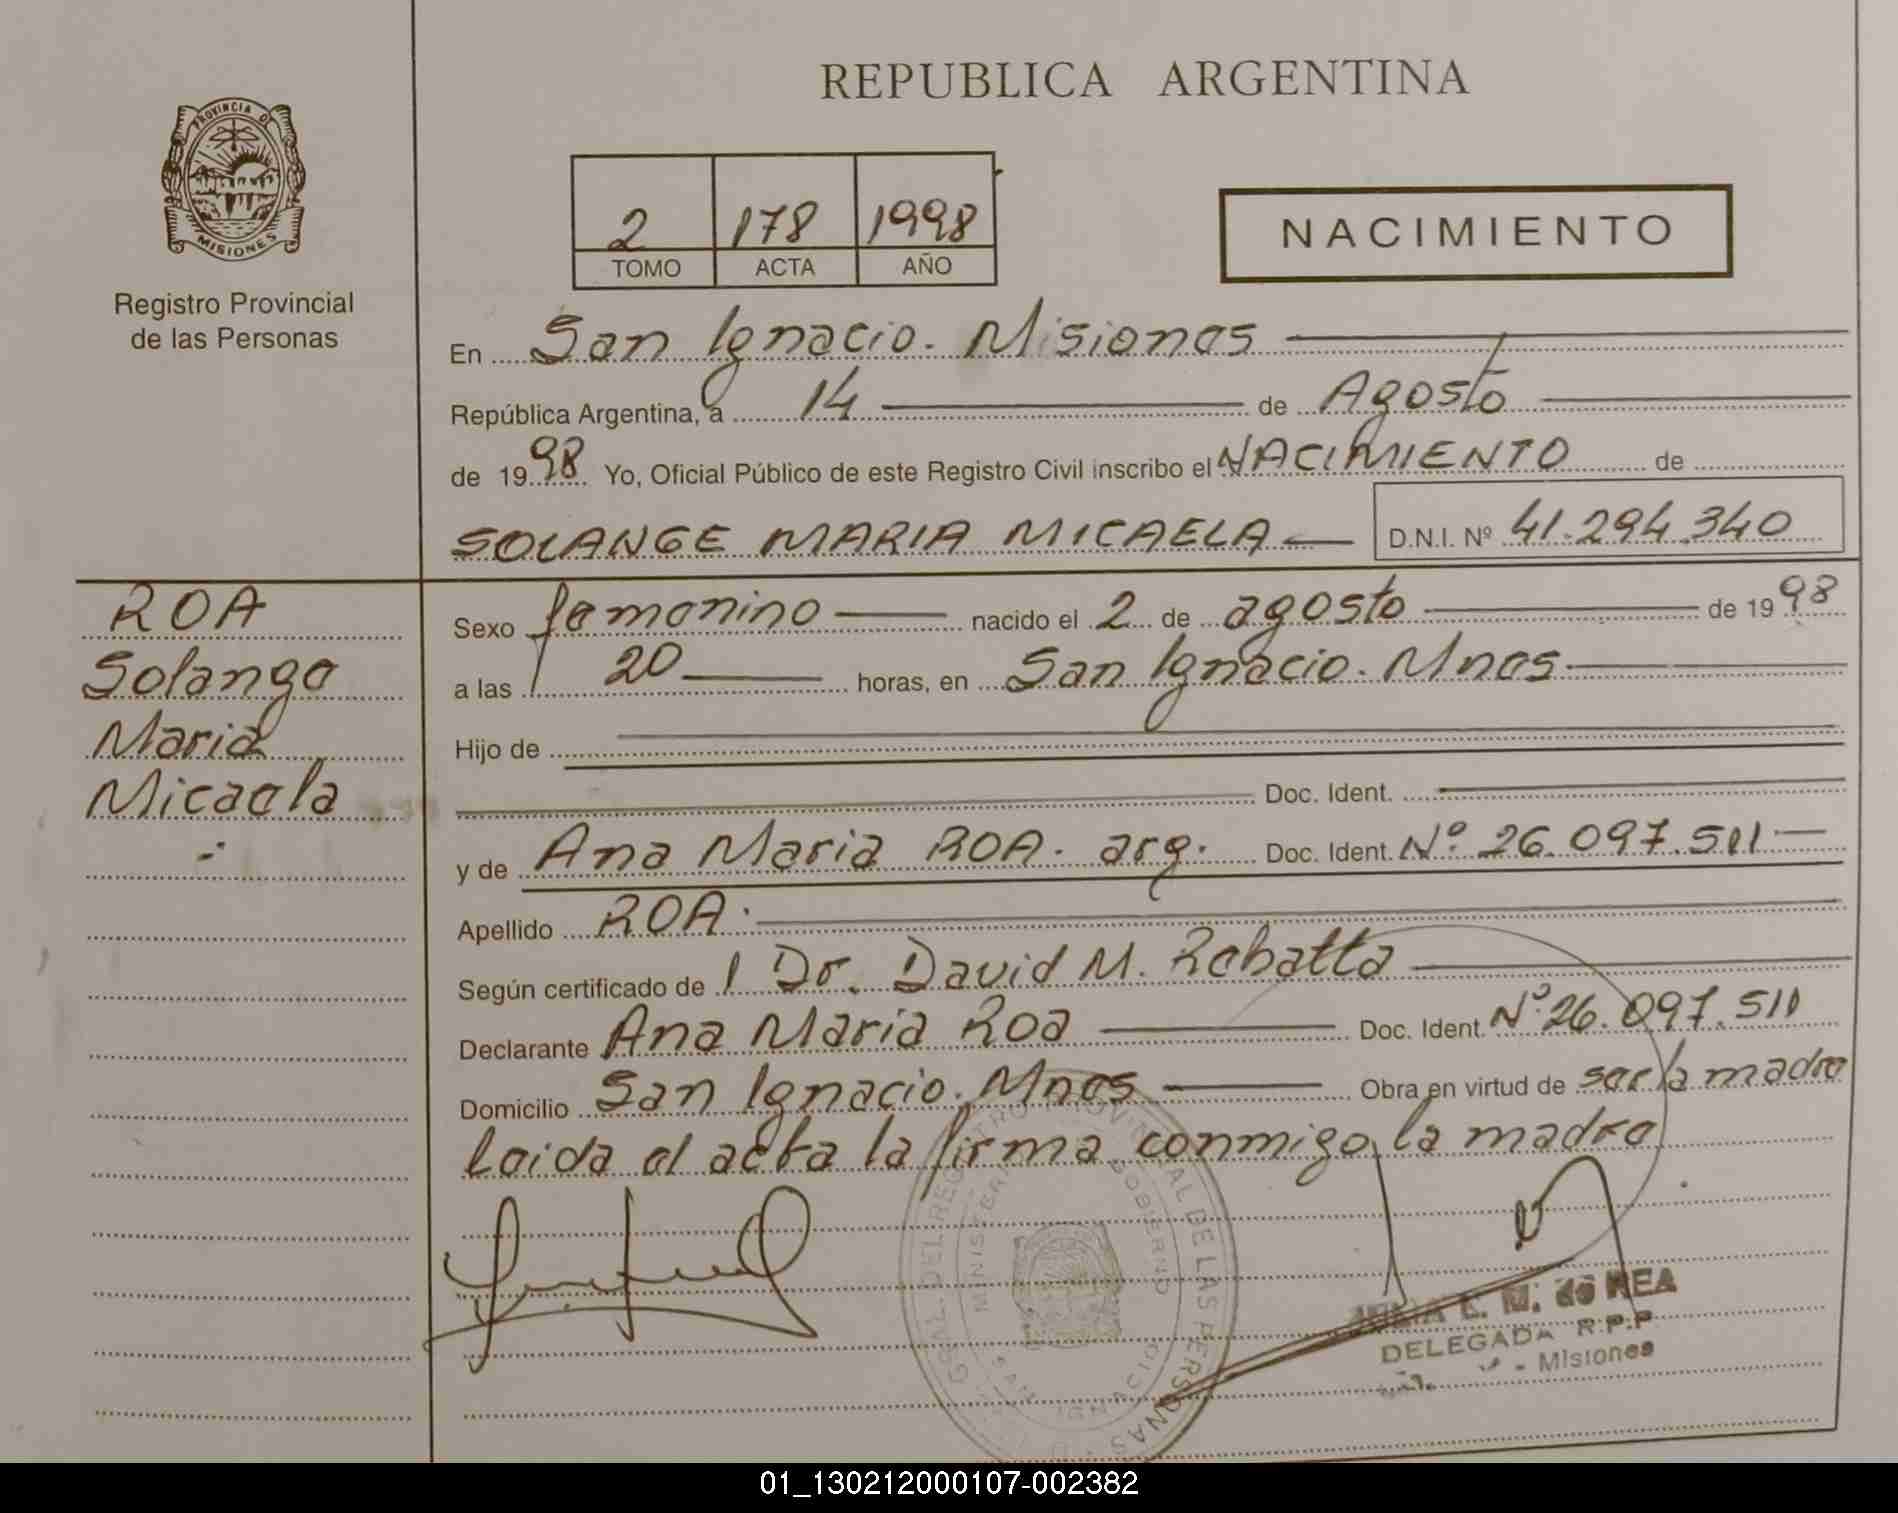 REPUBLICA ARGENTINA
PROVINCIA DE
MISIONES
Registro Provincial
de las Personas
2 178 1998
TOMO ACTA AÑO
NACIMIENTO
En San Ignacio. Misiones
República Argentina, a 14 de Agosto
de 1998 Yo, Oficial Público de este Registro Civil inscribo el NACIMIENTO de
SOLANGE MARIA MICAELA D.N.I. Nº 41.294.340
ROA
Solange
Maria
Micaela
Sexo femenino nacido el 2 de agosto de 1998
a las 20 horas, en San Ignacio. Mnes
Hijo de
Doc. Ident.
y de Ana Maria ROA. arg. Doc. Ident. Nº 26.097.511
Apellido ROA.
Según certificado de l Dr. David M. Rebatta
Declarante Ana Maria Roa Doc. Ident. Nº 26.097.511
Domicilio San Ignacio. Mnes Obra en virtud de ser la madre
leida el acta la firma conmigo la madre
GRAL. DEL REGISTRO PROVINCIAL DE LAS PERSONAS
MINISTERIO GOBIERNO
SAN IGNACIO
E. M. de REA
DELEGADA R.P.P
- Misiones
01_130212000107-002382